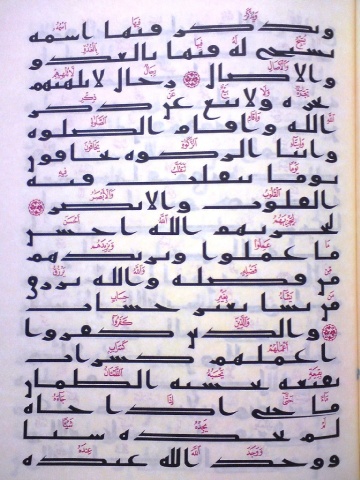 ويذكر فيها اسمه
يسبح له فيها بالغدو
والاصال رجال لا تلهيهم
تجره ولا بيع عن ذكر
الله واقام الصلوه
وايتا الزكوه يخافون
يوما تتقلب فيه
القلوب والابصر
ليجزيهم الله احسن
ما عملوا ويزيدهم
من فضله والله يرزق
من يشا بغير حساب
والذين كفروا
اعملهم كسراب
بقيعه يحسبه الظمان
ما حتى اذا جاه
لم يجده شيا
ووجد الله عنده